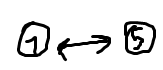 1 ↔ 5